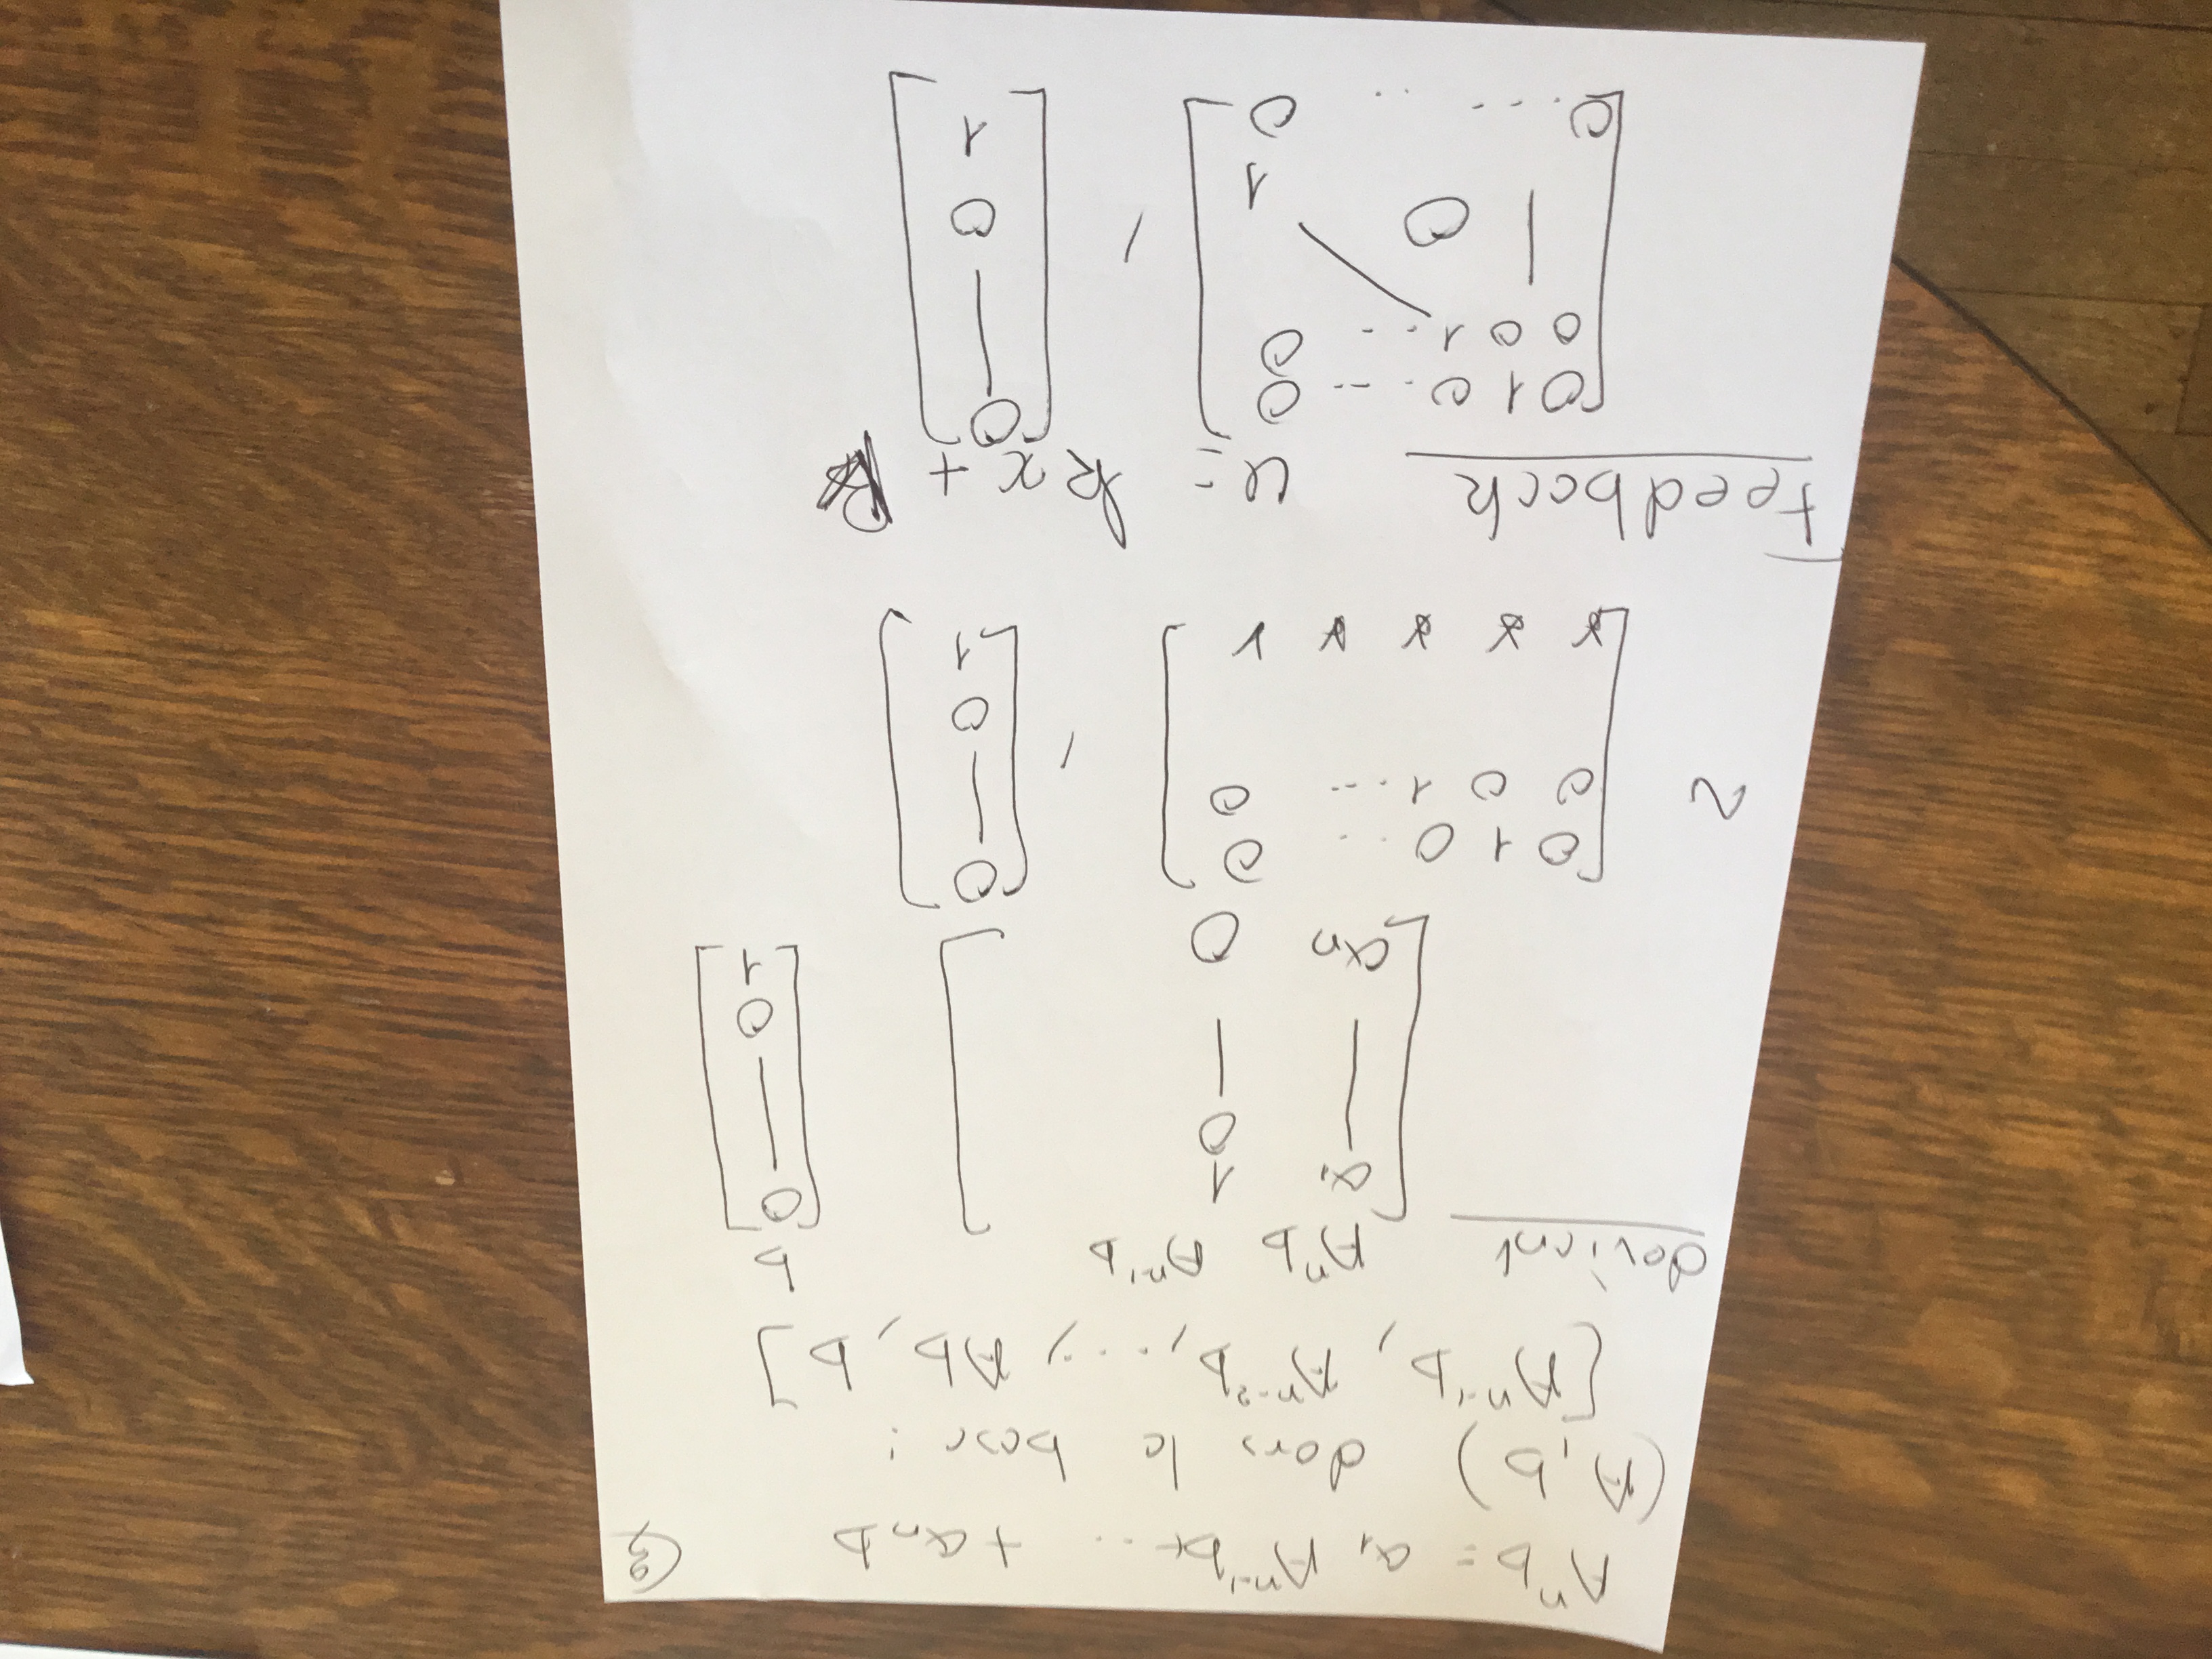 Aⁿb = a₁ Aⁿ⁻¹b + .. + aₙb
(A,b) dans la base :
[Aⁿ⁻¹b, Aⁿ⁻²b, ..., Ab, b]
devient Aⁿb Aⁿ⁻¹b b
a₁ 1 0
0
0
aₙ 0 1
~ 0 1 0 .. 0 0
0 0 1 ... 0 ,
0
* * * * * 1
Feedback u = kx +
0 1 0 . -- 0 0
0 0 1 .. -- 0
0 , 0
1
0. --- .. 0 1